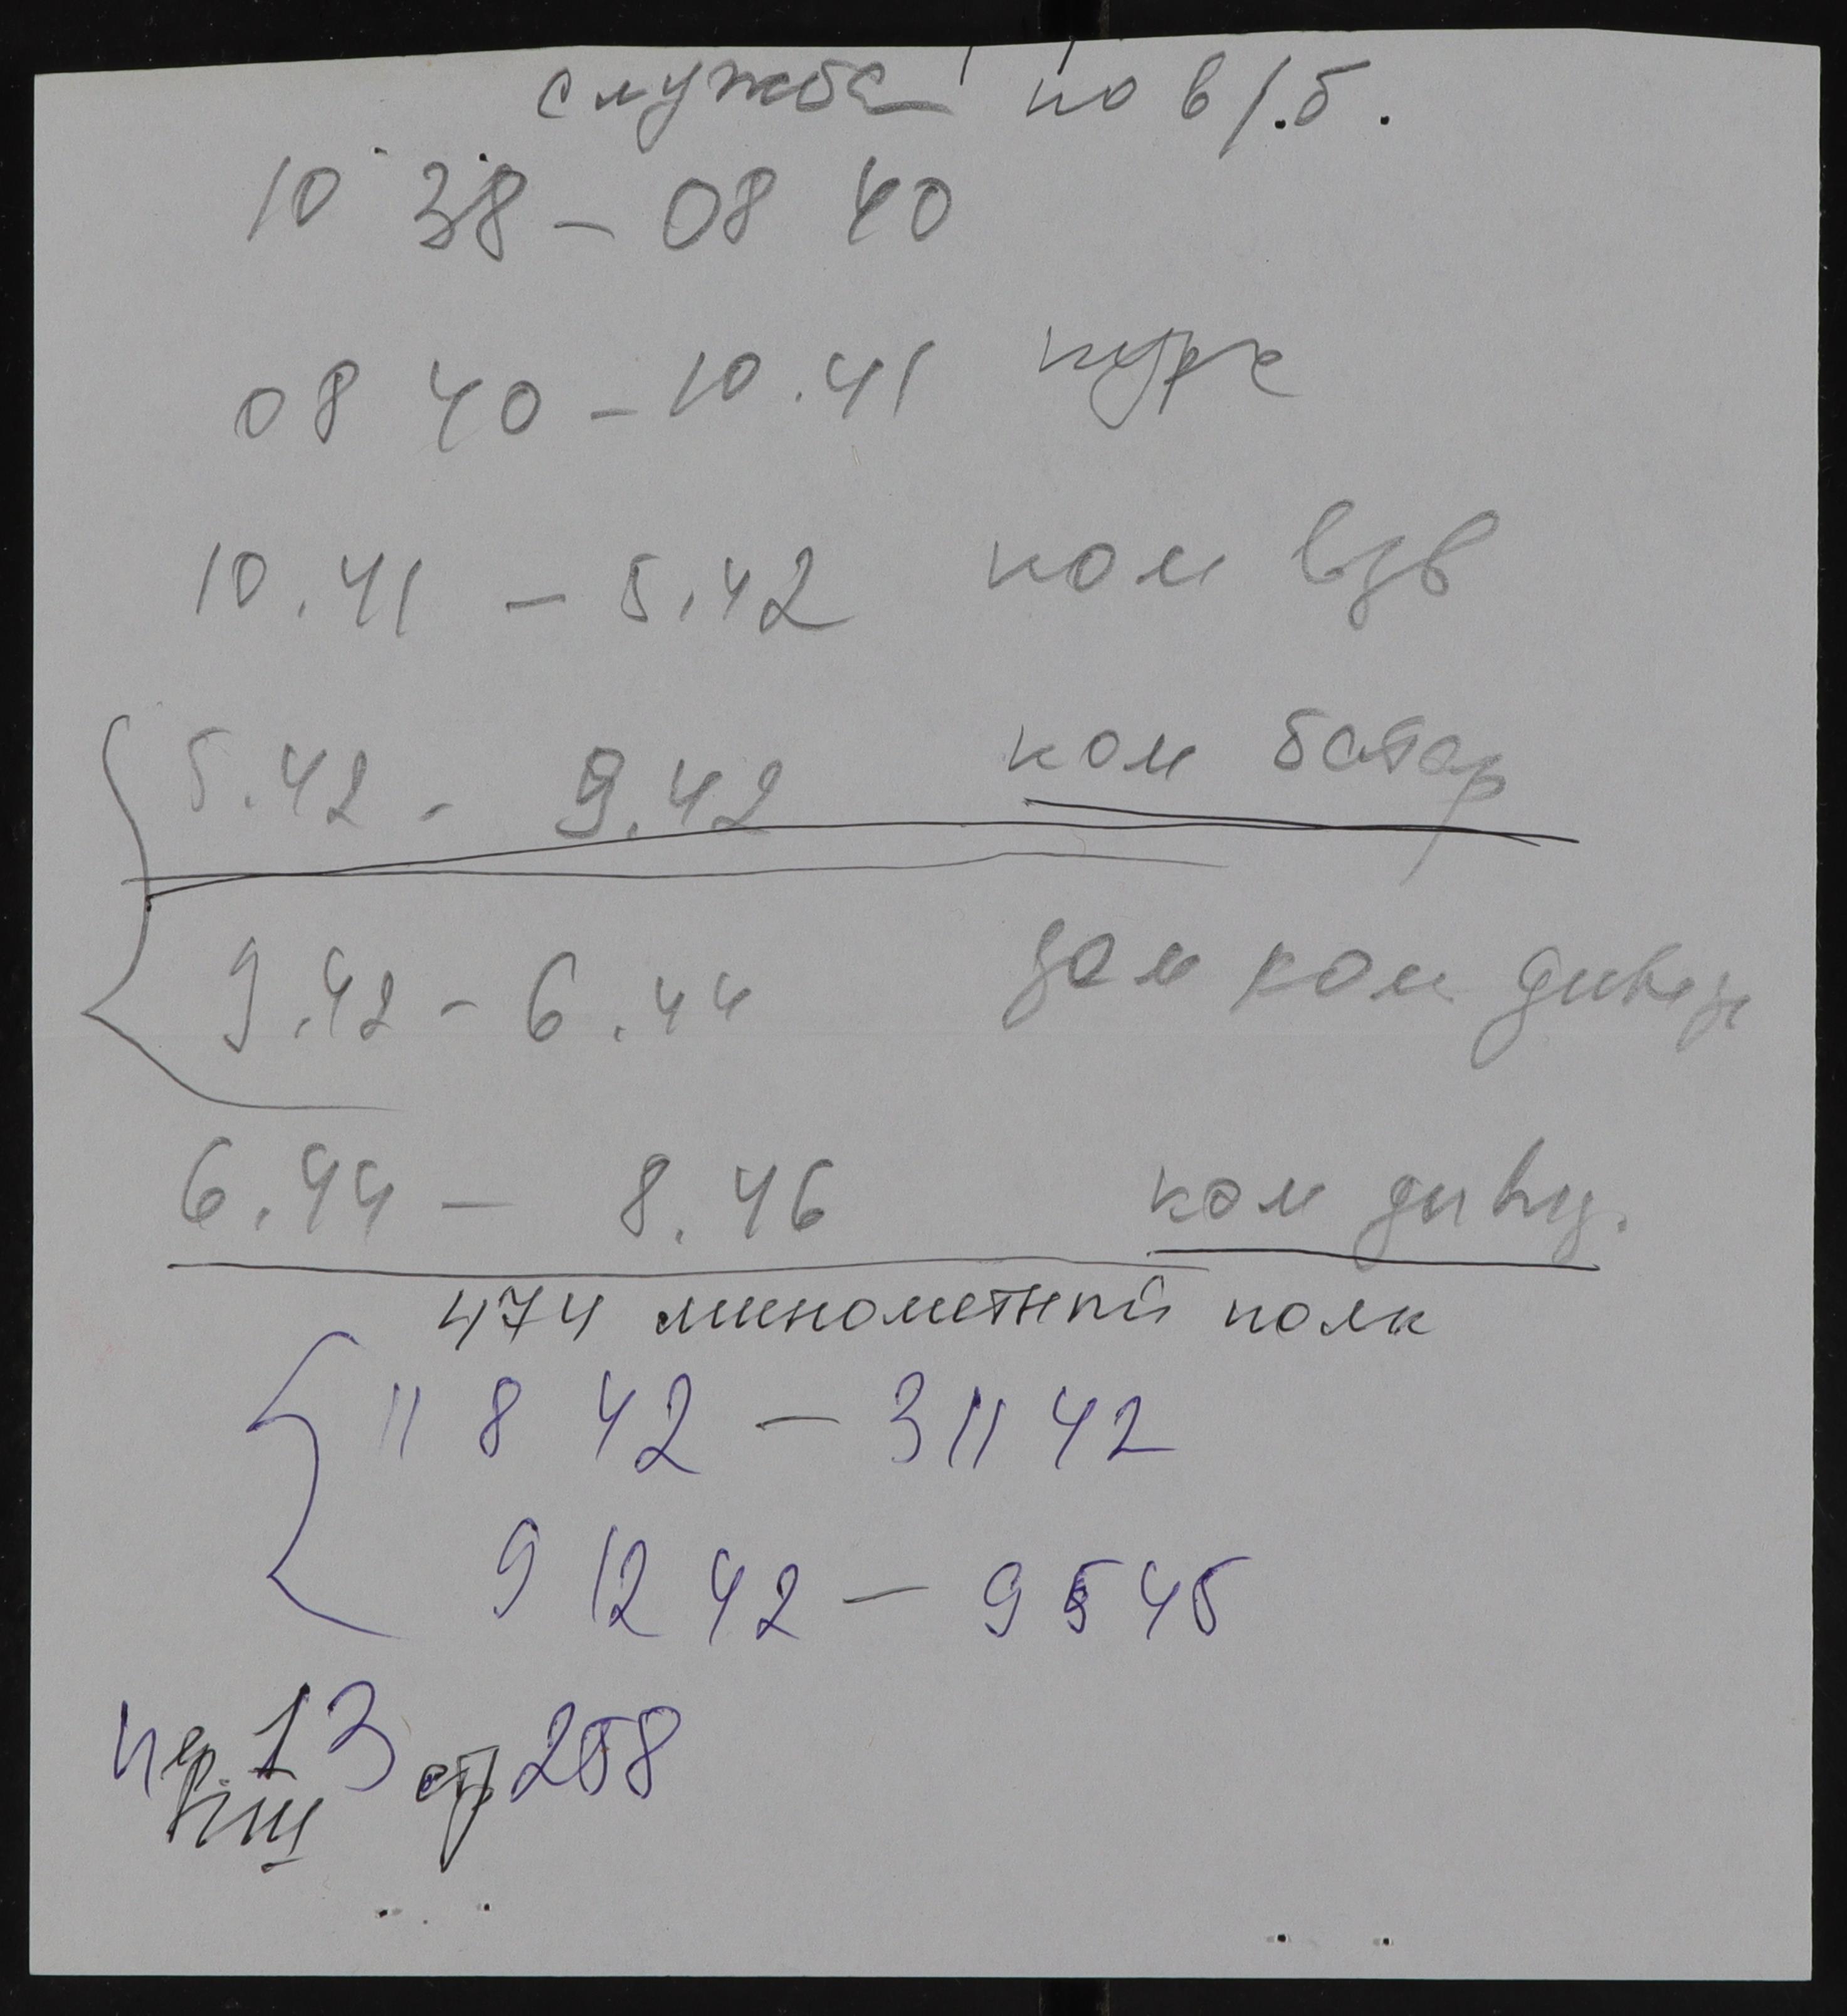 служба по в/.б.
10 38 – 08 40
08 40 – 10.41 курс
10.41 – 5.42 ком взв
5.42 - 9.42 ком батар
9.42 - 6.44 зам ком дивиз
6.44 – 8.46 ком дивиз.
474 минометный полк
11 8 42 – 3 11 42
9 12 42 – 9 5 45
пер. 13 стр 258